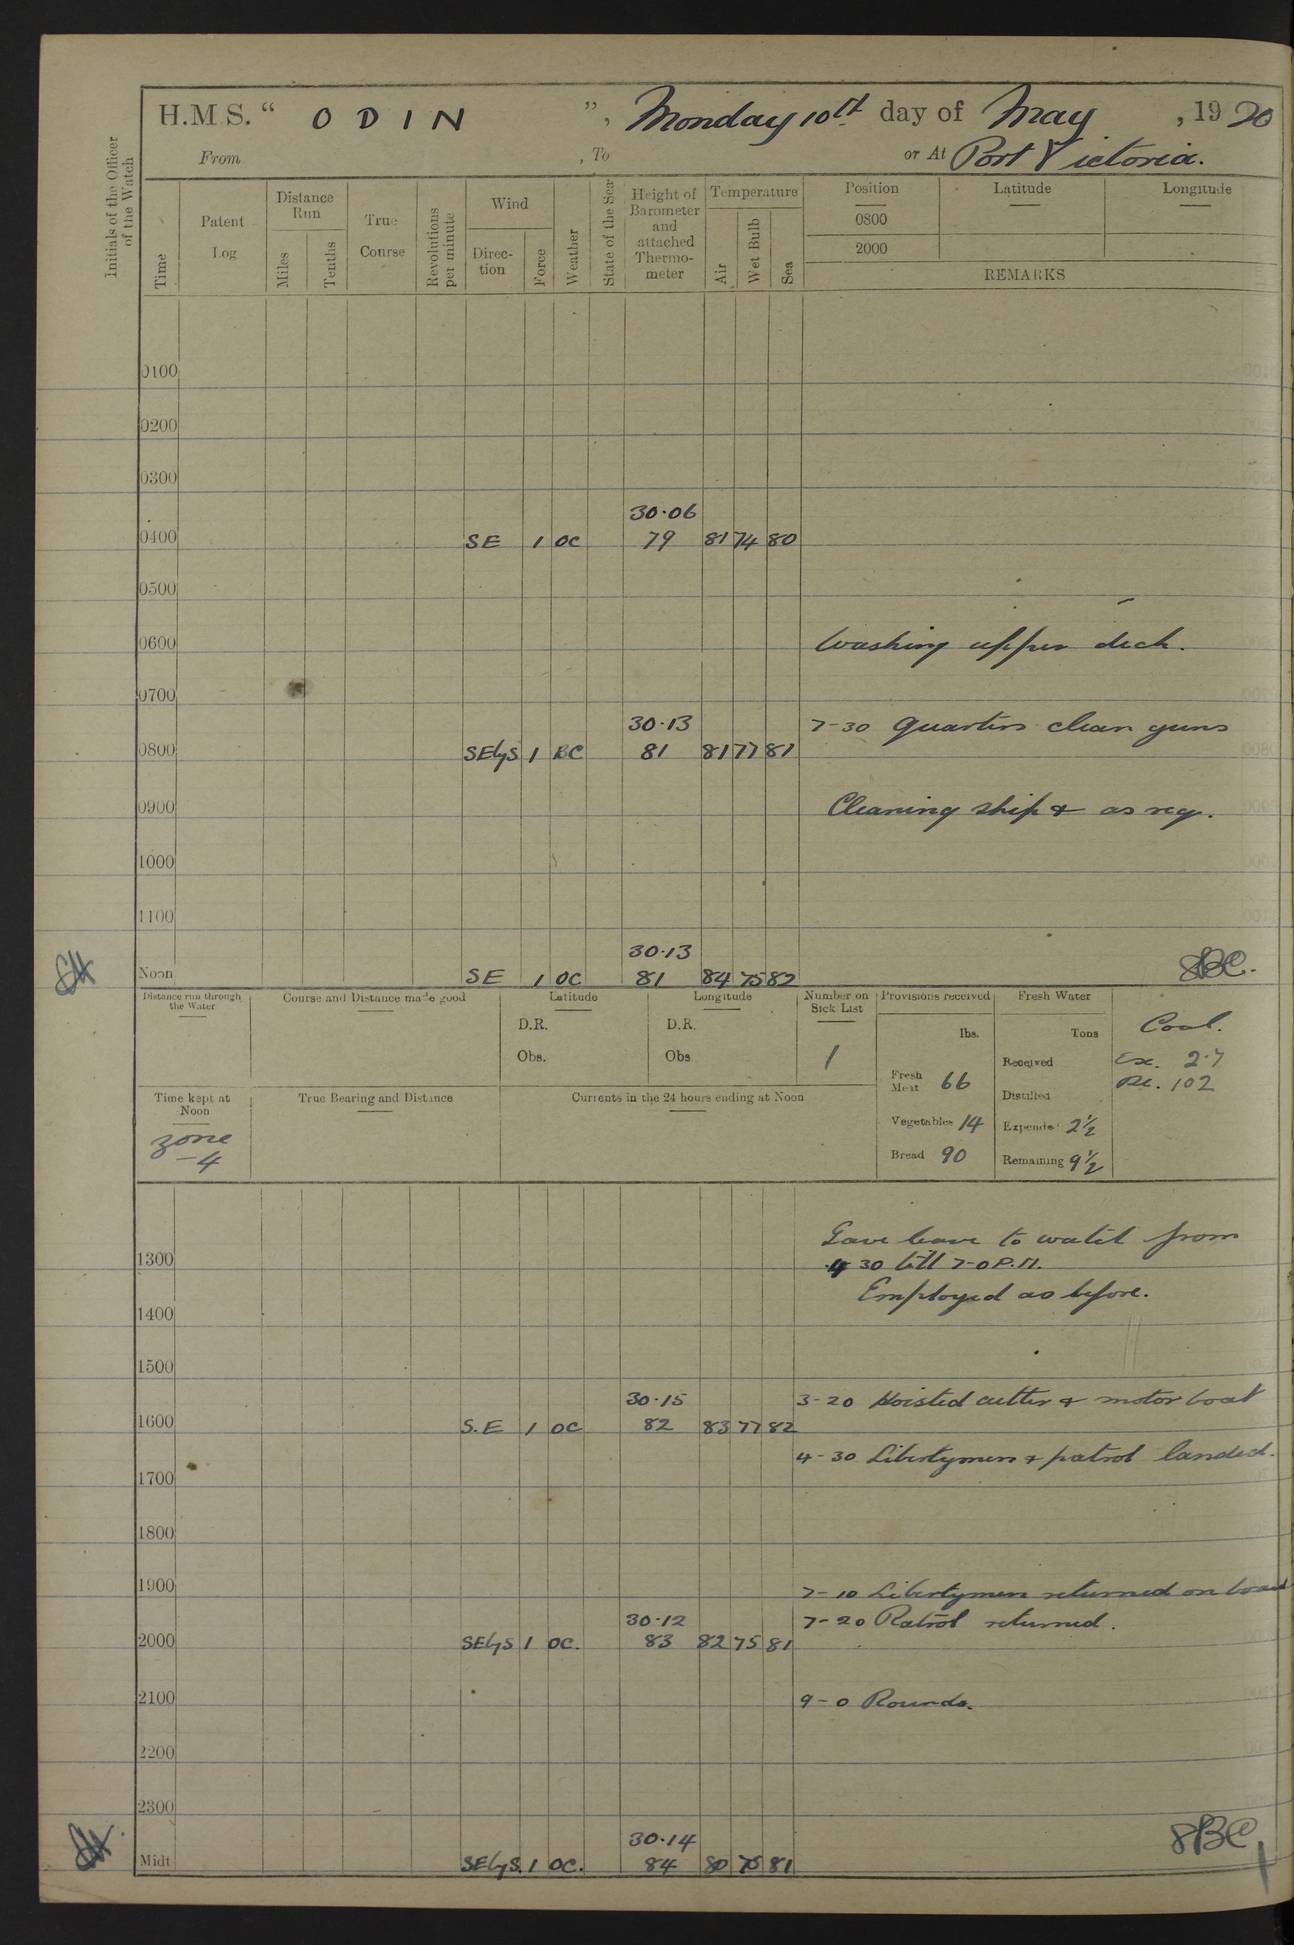 H.M S. “ ODIN ”, Monday 10th day of May , 1920
From , To or At Port Victoria.
Initials of the Officer of the Watch
Time
Patent Log
Distance Run
Miles
Tenths
True Course
Revolutions per minute
Wind
Direction
Force
Weather
State of the Sea
Height of Barometer and attached Thermo-meter
Temperature
Air
Wet Bulb
Sea
Position Latitude Longitude
0800
2000
REMARKS
0100
0200
0300
30·06
0400 SE 1 OC 79 81 74 80
0500
0600 Washing upper deck.
0700
30·13 7-30 Quarters clean guns
0800 SEbyS 1 BC 81 81 77 81
0900 Cleaning ship & as req.
1000
1100
30·13
Noon SE 1 OC 81 84 75 82
Distance run through the Water
Course and Distance made good
Latitude
D.R.
Obs.
Longitude
D.R.
Obs
Number on Sick List
1
Provisions received
lbs.
Fresh Meat 66
Vegetables 14
Bread 90
Fresh Water
Tons
Received
Distilled
Expended 2½
Remaining 9½
Coal.
Ex. 2·7
Re. 102
Time kept at Noon
zone
-4
True Bearing and Distance
Currents in the 24 hours ending at Noon
Gave leave to watch from
1300 4 30 till 7-0 P.M.
Employed as before.
1400
1500
30·15 3-20 Hoisted cutter & motor boat
1600 S.E 1 OC 82 83 77 82
4-30 Libertymen & patrol landed.
1700
1800
1900 7-10 Libertymen returned on board
30·12 7-20 Patrol returned.
2000 SEbyS 1 OC. 83 82 75 81
2100 9-0 Rounds.
2200
2300
30·14
Midt SEbyS. 1 OC. 84 80 75 81